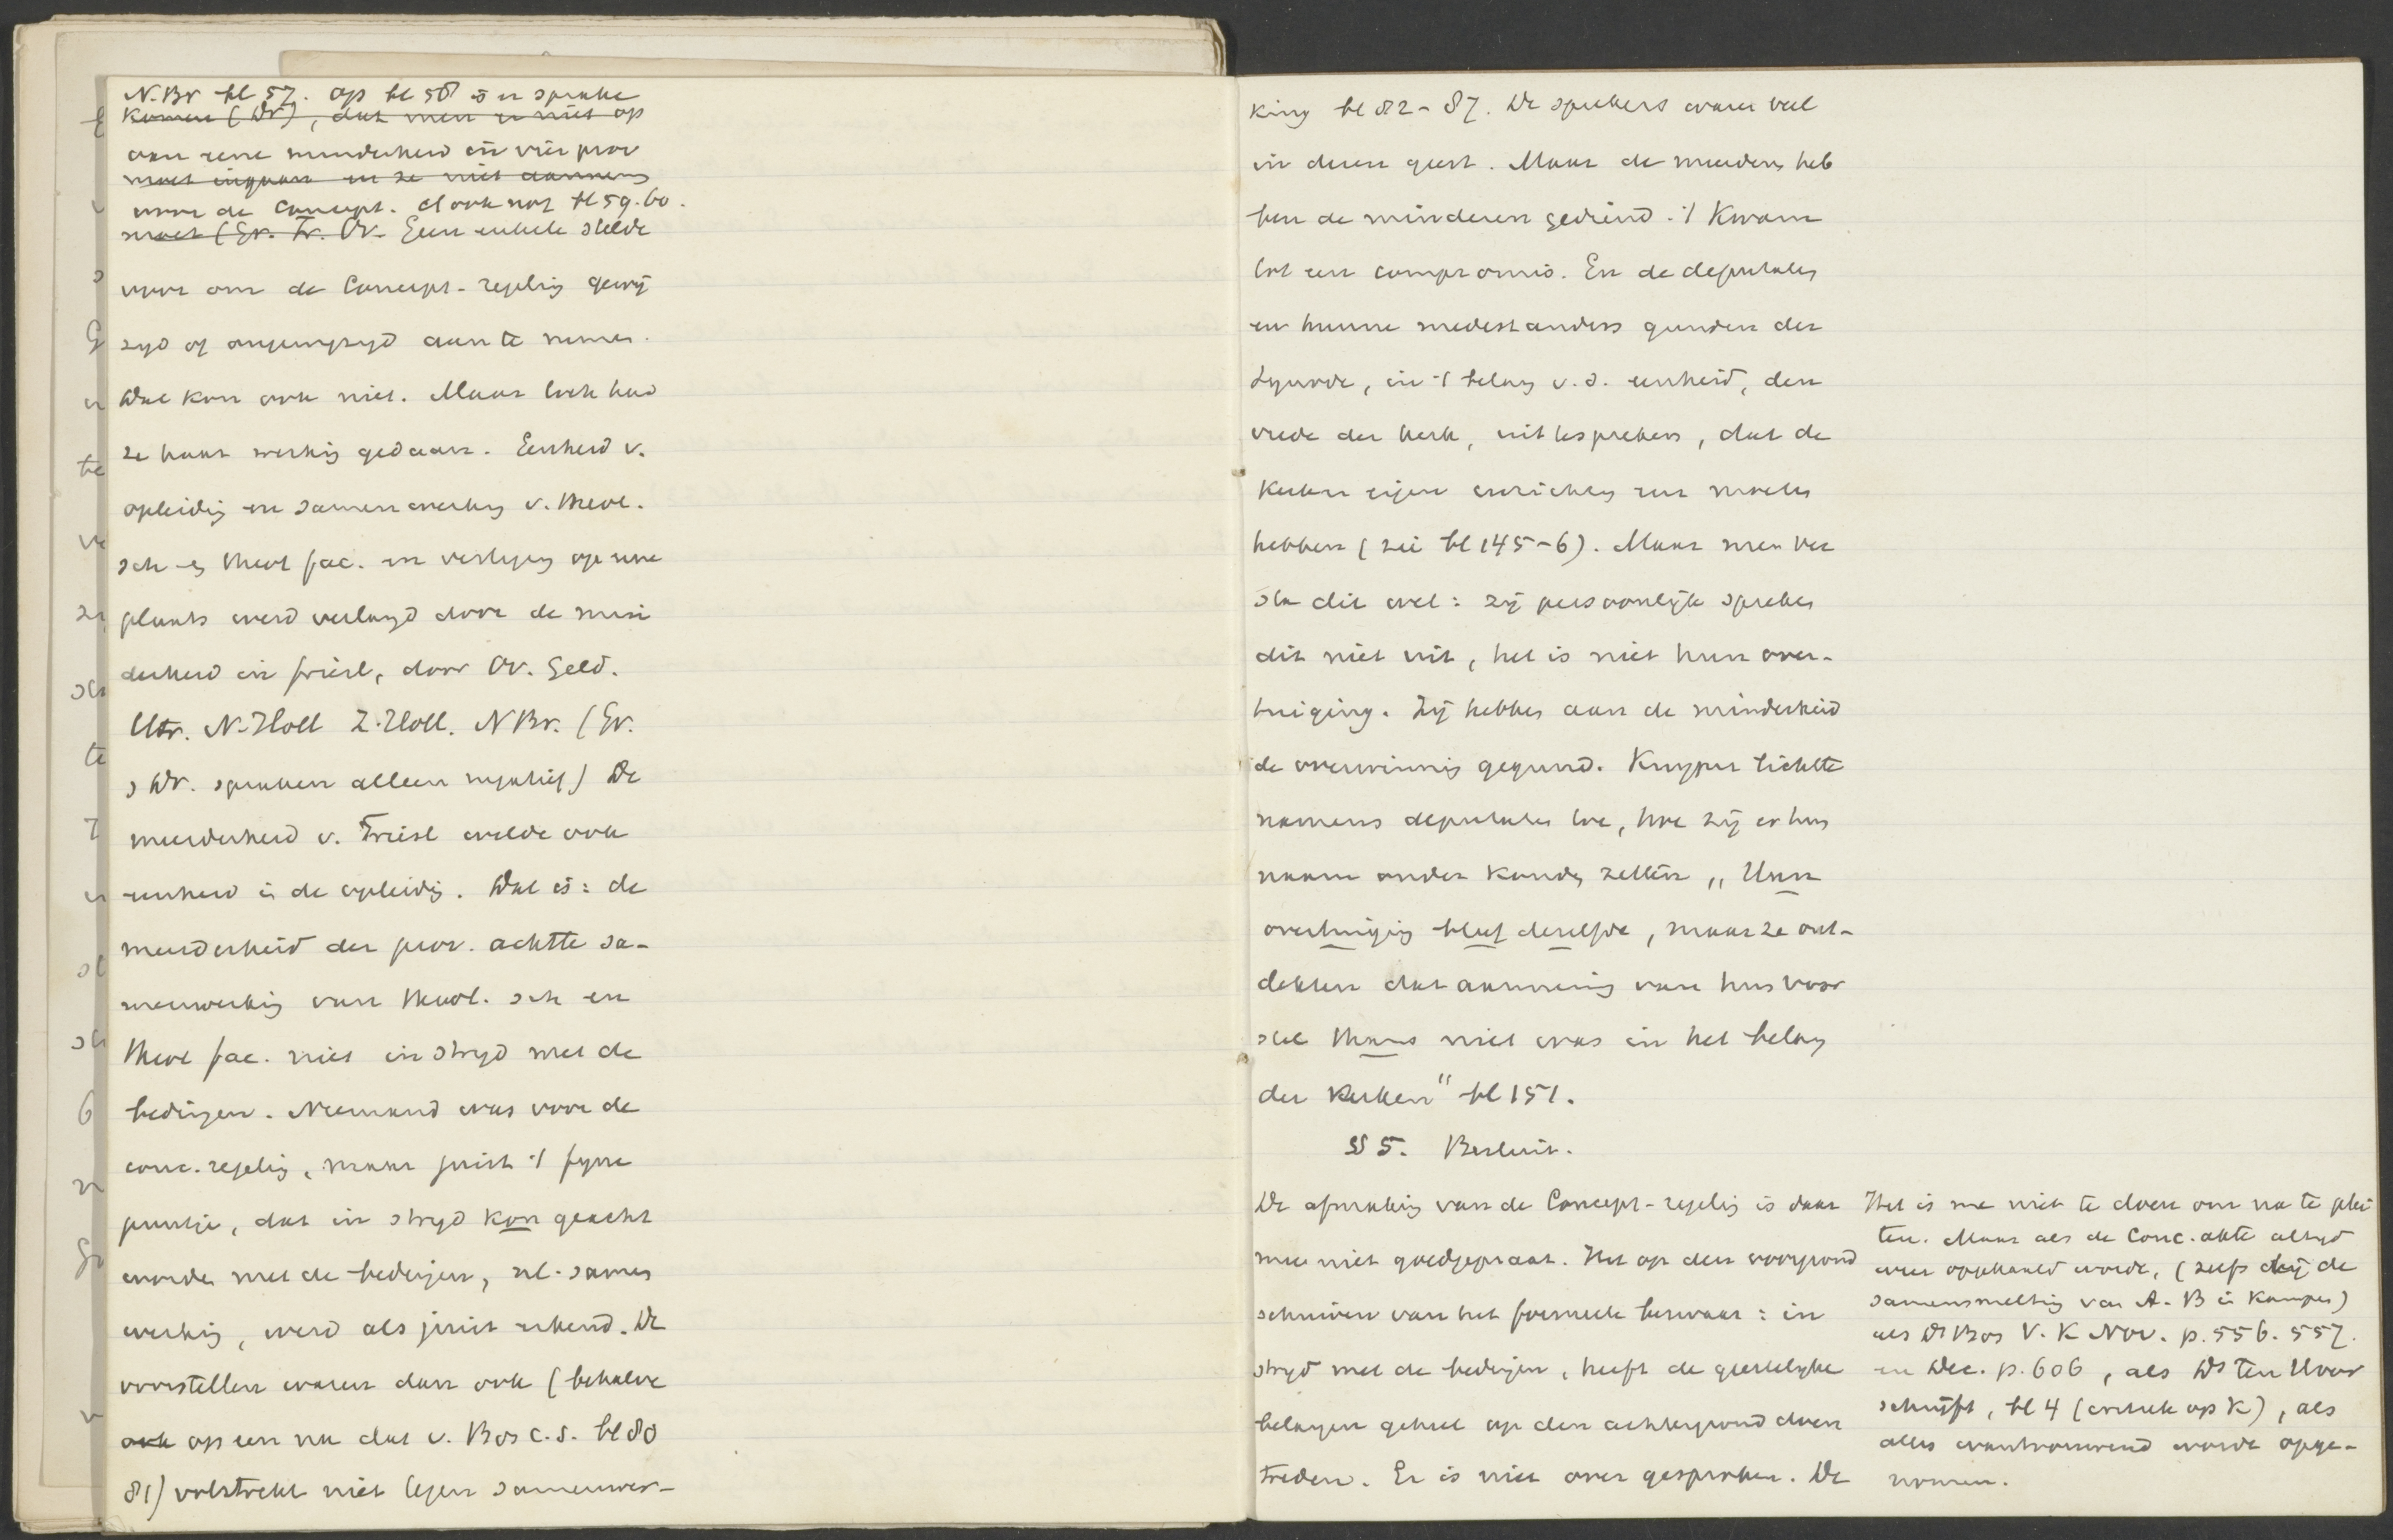 N.Br bl 57. op bl 58 is er sprake
komen (Dr), dat men er niet op
van eene minderheid in vier prov
moet ingaan en ze niet aannemen
voor de Concept. cf ook nog bl 59. 60.
moet (Gr. Fr. Ov. Een enkele stelde
voor om de Concept-regeling gewij
zigd of ongewijzigd aan te nemen.
Dat kon ook niet. Maar toch had
ze haar werking gedaan. Eenheid v.
opleiding en samenwerking v. Theol.
sch en Theol fac. en vestiging op eene
plaats werd verlangd door de min
derheid in Friesl, door Ov. Geld.
Utr. N-Holl Z.Holl. NBr. (Gr.
Dr. spraken alleen negatief) De
meerderheid v. Friesl wilde ook
eenheid in de opleiding. Dat is: de
meerderheid der prov. achtte sa-
menwerking van Theol. sch en
Theol fac. niet in strijd met de
bedingen. Niemand was voor de
conc. regeling, maar juist 't fijne
puntje, dat in strijd kon geacht
worden met de bedingen, nl. samen
werking, werd als juist erkend. De
voorstellen waren dan ook (behalve
ook op een na dat v. Bos c.s. bl 80
81) volstrekt niet tegen samenwer-
king bl 82-87. De sprekers waren veel
in dezen geest. Maar de meerderen heb
ben de minderen gediend. 't Kwam
tot een compromis. En de deputaten
en hunne medestanders gunden der
Synode, in 't belang v.d. eenheid, den
vrede der kerk, uit te spreken, dat de
Kerken eigen inrichting
hebben (zie bl 145-6). Maar men ver
sta dit wel: zij persoonlijk spreken
dit niet uit, het is niet hun over-
tuiging. Zij hebben aan de minderheid
de overwinning gegund. Kuyper lichtte
namens deputaten toe, hoe zij er hun
naam onder konden zetten „Hun
overtuiging bleef dezelfde, maar ze ont-
dekten dat aanneming van hun voor
stel thans niet was in het belang
der Kerken" bl 151.
§ 5. Besluit.
De afmaking van de Concept-regeling is daar
mee niet goedgepraat. Het op den voorgrond
schuiven van het formeele bezwaar: in
strijd met de bedingen, heeft de geestelijke
belangen geheel op den achtergrond doen
treden. Er is niet over gesproken. De
Het is me niet te doen om na te plei
ten. Maar als de Conc. akte altijd
weer opgehaald wordt, (zelfs bij de
samensmelting van A. B in Kampen)
als Dr Bos V. K Nov. p. 556. 557.
en Dec. p. 606, als Ds Ten Hoor
schrijft, bl 4 (critiek op K), als
alles wantrouwend wordt opge-
nomen.